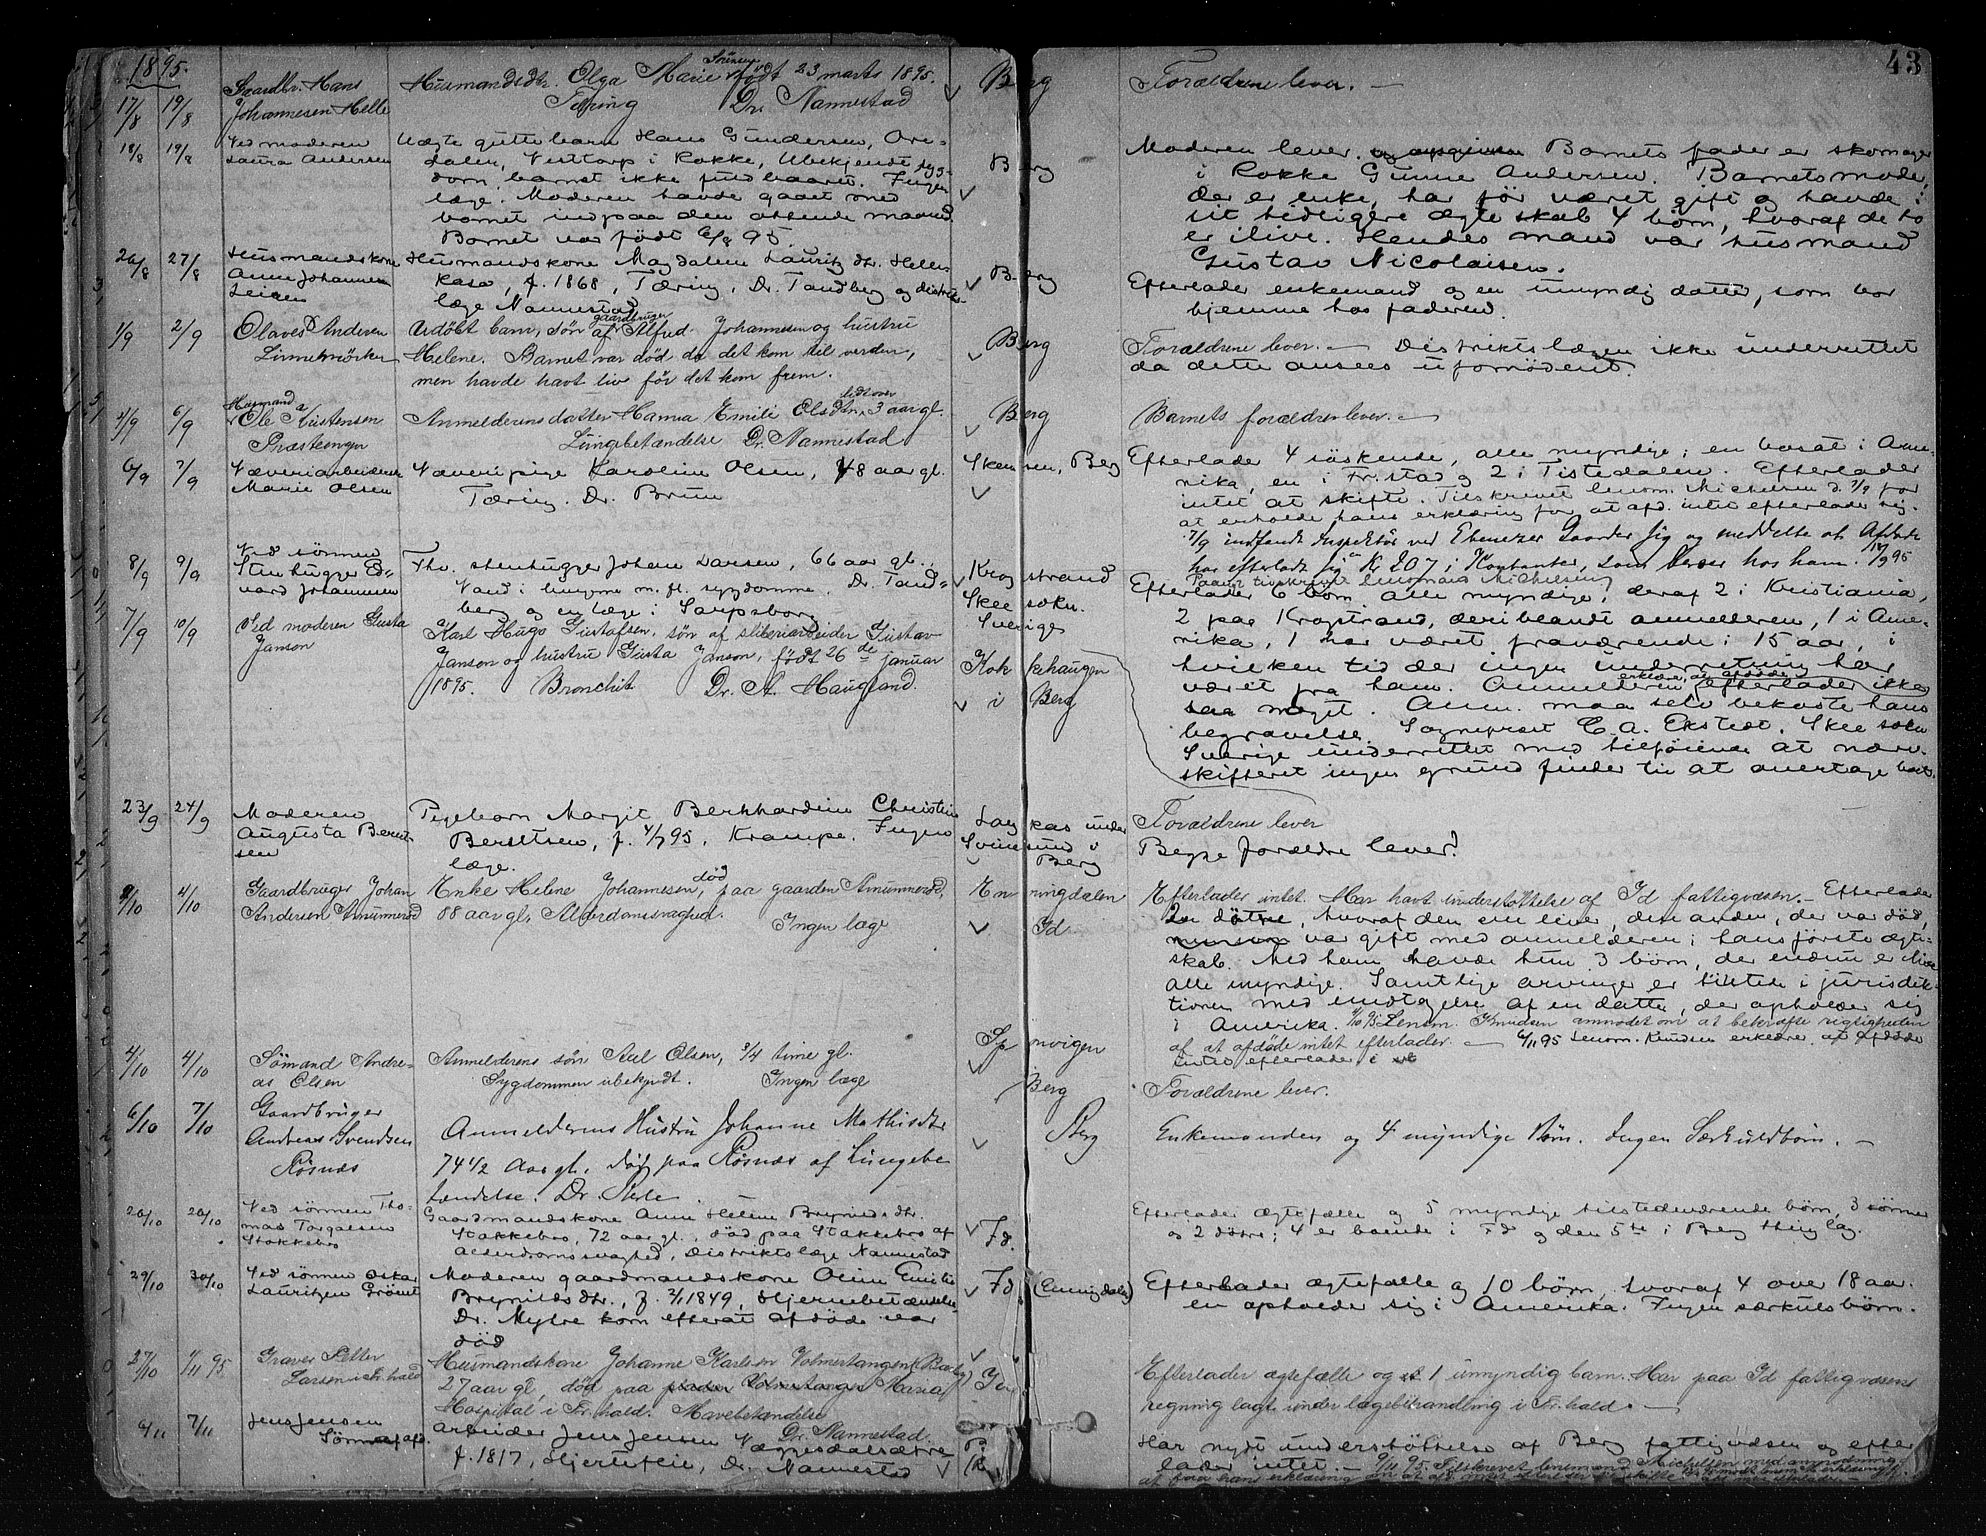 43
1895.
17/8 19/8 Gaardbr. Hans Husmandsdtr. Olga Marie født 23 marts 1895. Berg Forældrene lever. —
Johannesen Helle Tæring Dr. Nannestad
18/8 19/8 Ved moderen Uægte guttebarn Hans Gundersen, Ore- Berg Moderen lever. Barnets fader er skomager
Laura Andersen dalen, i Rokke, Ubekjendt syg- i Rokke Gunne Andersen. Barnets mode-
dom, barnet ikke fuldbaaret. Ingen der er enke, har før været gift og havde i
læge. Moderen havde gaaet med sit tidligere ægteskab 4 børn, hvoraf de to
barnet indpaa den ottende maaned. er ilive. Hendes mand var husmand
Barnet var født 6/8 95. Gustav Nicolaisen.
26/8 27/8 Husmandskone Husmandskone Magdalene Lauritz dtr. Helle- Berg Efterlader enkemand og en umyndig datter, som bor
Anne Johannesen kasa, f. 1868, Tæring, Dr. Tandberg og distrikts- hjemme hos faderen.
læge Nannestad
1/9 2/9 Olaves Andersen Udøbt barn, søn af gaardbruger Alfred Johannesen og hustru Berg Forældrene lever. — Distriktslægen ikke underrettet
Helene. Barnet var død da det kom til verden, da dette ansees ufornødent.
men havde havt liv før det kom frem.
2/9 6/9 Husmand Anmelderens datter Hanna Emilie Olsdtr, lidt over 3 aar gl. Berg Barnets forældre lever. —
Ole Kristensen Lungebetændelse Dr. Nannestad
Præsteengen
6/9 7/9 Væveriarbeiderske Væveripige Karoline Olsen, 48 aar gl. Skansen, Berg Efterlader 4 søskende, alle myndige; en bosat i Ame-
Marie Olsen Tæring. Dr. Brun rika, en i Fr.stad og 2 i Tistedalen. Efterlader
intet at skifte. Tilskrevet lensm. Michelsen d. 7/9 for
at erholde hans erklæring for at afd. intet efterlader sig.
7/9 indfandt Inspektør ved Ebenezer Gaarder sig og meddelte at Afdøde
har efterladt sig Kr 207 i Kontanter, som beror hos ham.
8/9 9/9 Ved sønnen Fhv. stenhugger Johan Larsen, 66 aar gl. Krogstrand Efterlader 6 børn alle myndige, deraf 2 i Kristiania,
Stenhugger Ed- Vand i lungerne m. fl. sygdomme. Dr. Tand- Skee sokn. 2 paa Krogstrand, deriblandt anmelderen, 1 i Ame-
vard Johannesen berg og en læge i Sarpsborg Sverige rika, 1 har været fraværende i 15 aar, i
hvilken tid der ingen underretning har
været fra ham. Anmelderen erklærer, at afdøde efterlader ikke
saa meget. Anm. maa selv bekoste hans
begravelse. Sogneprest C. A. Ekstedt. Skee sokn
Sverige underrettet med tilføiende at nærv.
skifteret ingen grund finder til at overtage boet.
7/9 10/9 Ved moderen Gusta Karl Hugo Gustafsen, søn af sliberiarbeider Gustav
Janson Janson og hustru Gusta Janson, født 26de januar i Berg
1895. Bronchit Dr. A. Haugland.
23/9 24/9 Moderen Pigebarn Margit Bernhardine Christine Svinesund i Berg Forældrene lever
Augusta Bernt- Berntsen, f. 4/7 95, Krampe. Ingen Begge forældre lever!
sen læge.
2/10 4/10 Gaardbruger Johan Enke Helene Johannesen, død paa gaarden Amunnerød, Enningdalen Efterlader intet. Har havt understøttelse af Id fattigvæsen. — Efterlader
Andersen Amunnerød 88 aar gl. Alderdomssvaghed. Ingen læge Id to døtre, hvoraf den ene lever, den anden, der var død,
var gift med anmelderen i hans første ægte-
skab. Med ham havde hun 3 børn, der endnu er ilive
alle myndige. Samtlige arvinger er tilstede i jurisdik-
tionen med undtagelse af en datter, der opholder sig
i Amerika. Lensm. Knudsen anmodet om at bekræfte rigtigheden
af at afdøde intet efterlader. — 6/11 95 Lensm. Knudsen erklærer, at afdøde
intet efterlader
4/10 4/10 Sømand Andre- Anmelderens søn Axel Olsen, 3/4 time gl. Sponvigen Forældrene lever.
as Olsen Sygdommen ubekjendt. Ingen læge Berg
6/10 7/10 Gaardbruger Anmelderens Hustru Johanne Mathisdtr Berg Enkemanden og 4 myndige Børn. Ingen Særkuldbørn. —
Andreas Svendsen 74 1/2 Aar gl. død paa Røsnæs af Lungebe-
Røsnæs tændelse. Dr.
20/10 20/10 Ved sønnen Tho- Gaardmandskone Anne Helene Brynilds dtr. Id. Efterlader ægtefælle og 5 myndige tilstedeværende børn, 3 sønner
mas Torgalsen Stakkebro, 72 aar gl., død paa Stakkebro af og 2 døtre; 4 er boende i Id og den 5te i Berg thinglag.
Stokkebro Alderdomssvaghed, Distriktslæge Nannestad
29/10 30/10 Ved sønnen Oskar Moderen gaardmandskone Oline Emilie Id (Enningdalen) Efterlader ægtefælle og 10 børn, hvoraf 4 over 18 aar.
Lauritzen Brynilds dtr., f. 1849, Hjernebetændelse, en opholder sig i Amerika. Ingen særkulsbørn.
Dr. Mylre kom efterat afdøde var
død
27/10 1/11 95 Graver Petter Husmandskone Johanne Karlsen Volmertangen Id Efterlader ægtefælle og 1 umyndig barn. Har paa Id fattigvæsens
Larsen i Fr.hald 27 aar gl, død paa Maria regning lagt under lægebehandling i Fr.hald. —
Hospital i Fr.hald. Mavebetændelse
Dr. Nannestad.
6/11 7/11 Jens Jensen Arbeider Jens Jensen Har nydt understøttelse af Berg fattigvæsen og efter-
Søn af afd. f. 1817, Hjertefeil, Dr. Nannestad lader intet. — 9/11 95 Tilskrevet lensmand Michelsen med anmodning